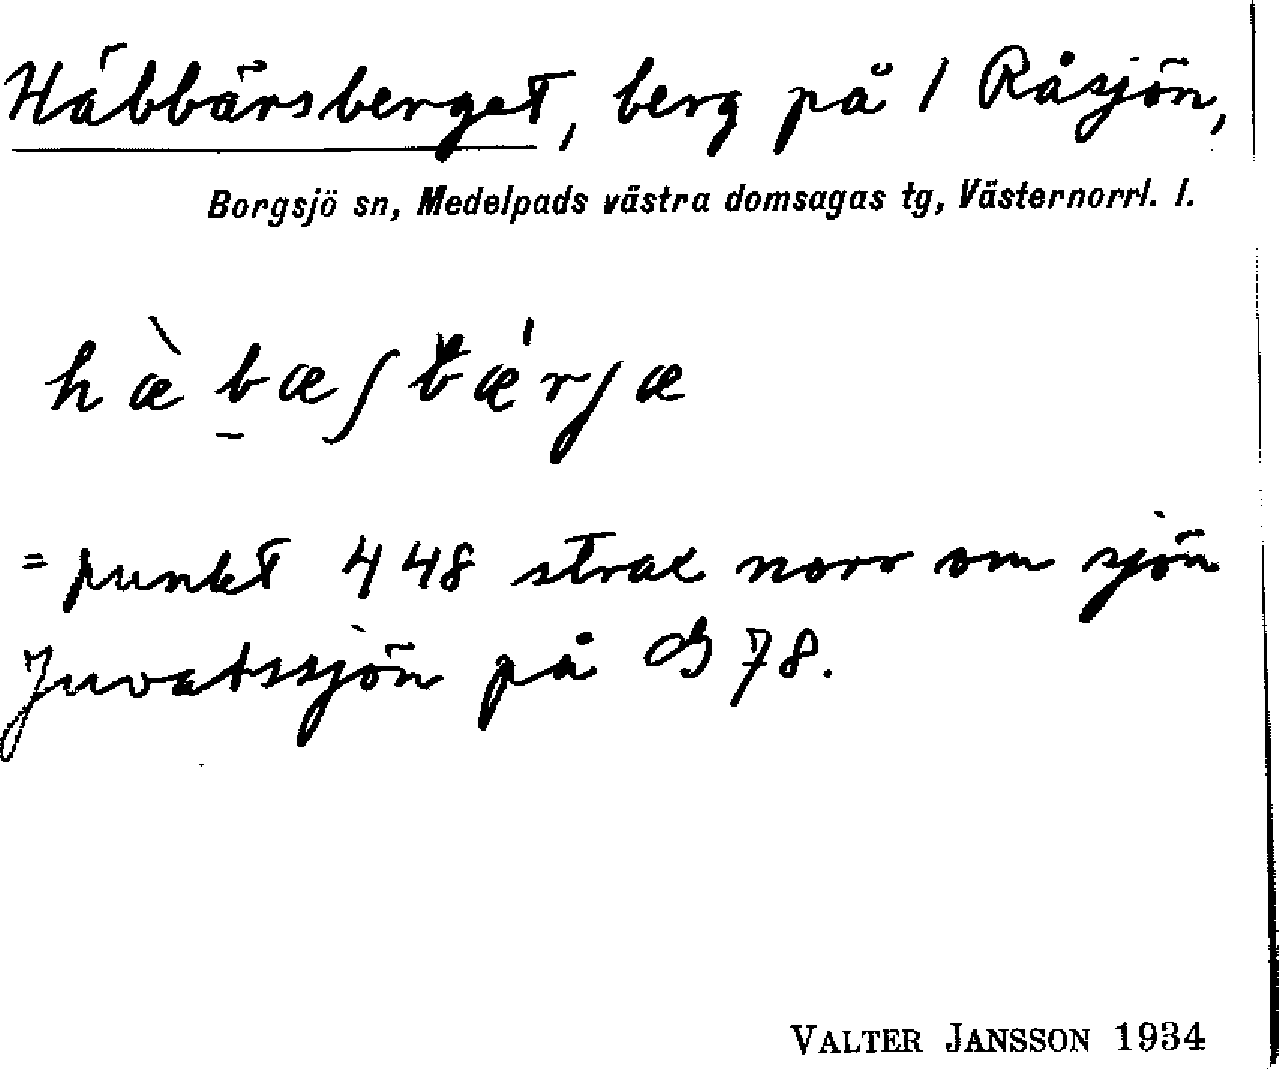 Häbbärsberget, berg på 1 Råsjön,
Borgsjö sn, Medelpads västra domsagas tg, Västernorrl. l.
hæ̀ḇæʃbǽrjæ
= punkt 448 strax norr om sjön
Juvatssjön på G 78.
VALTER JANSSON 1934